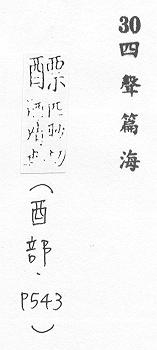 30四聲篇海
醥
(酉部、P543)